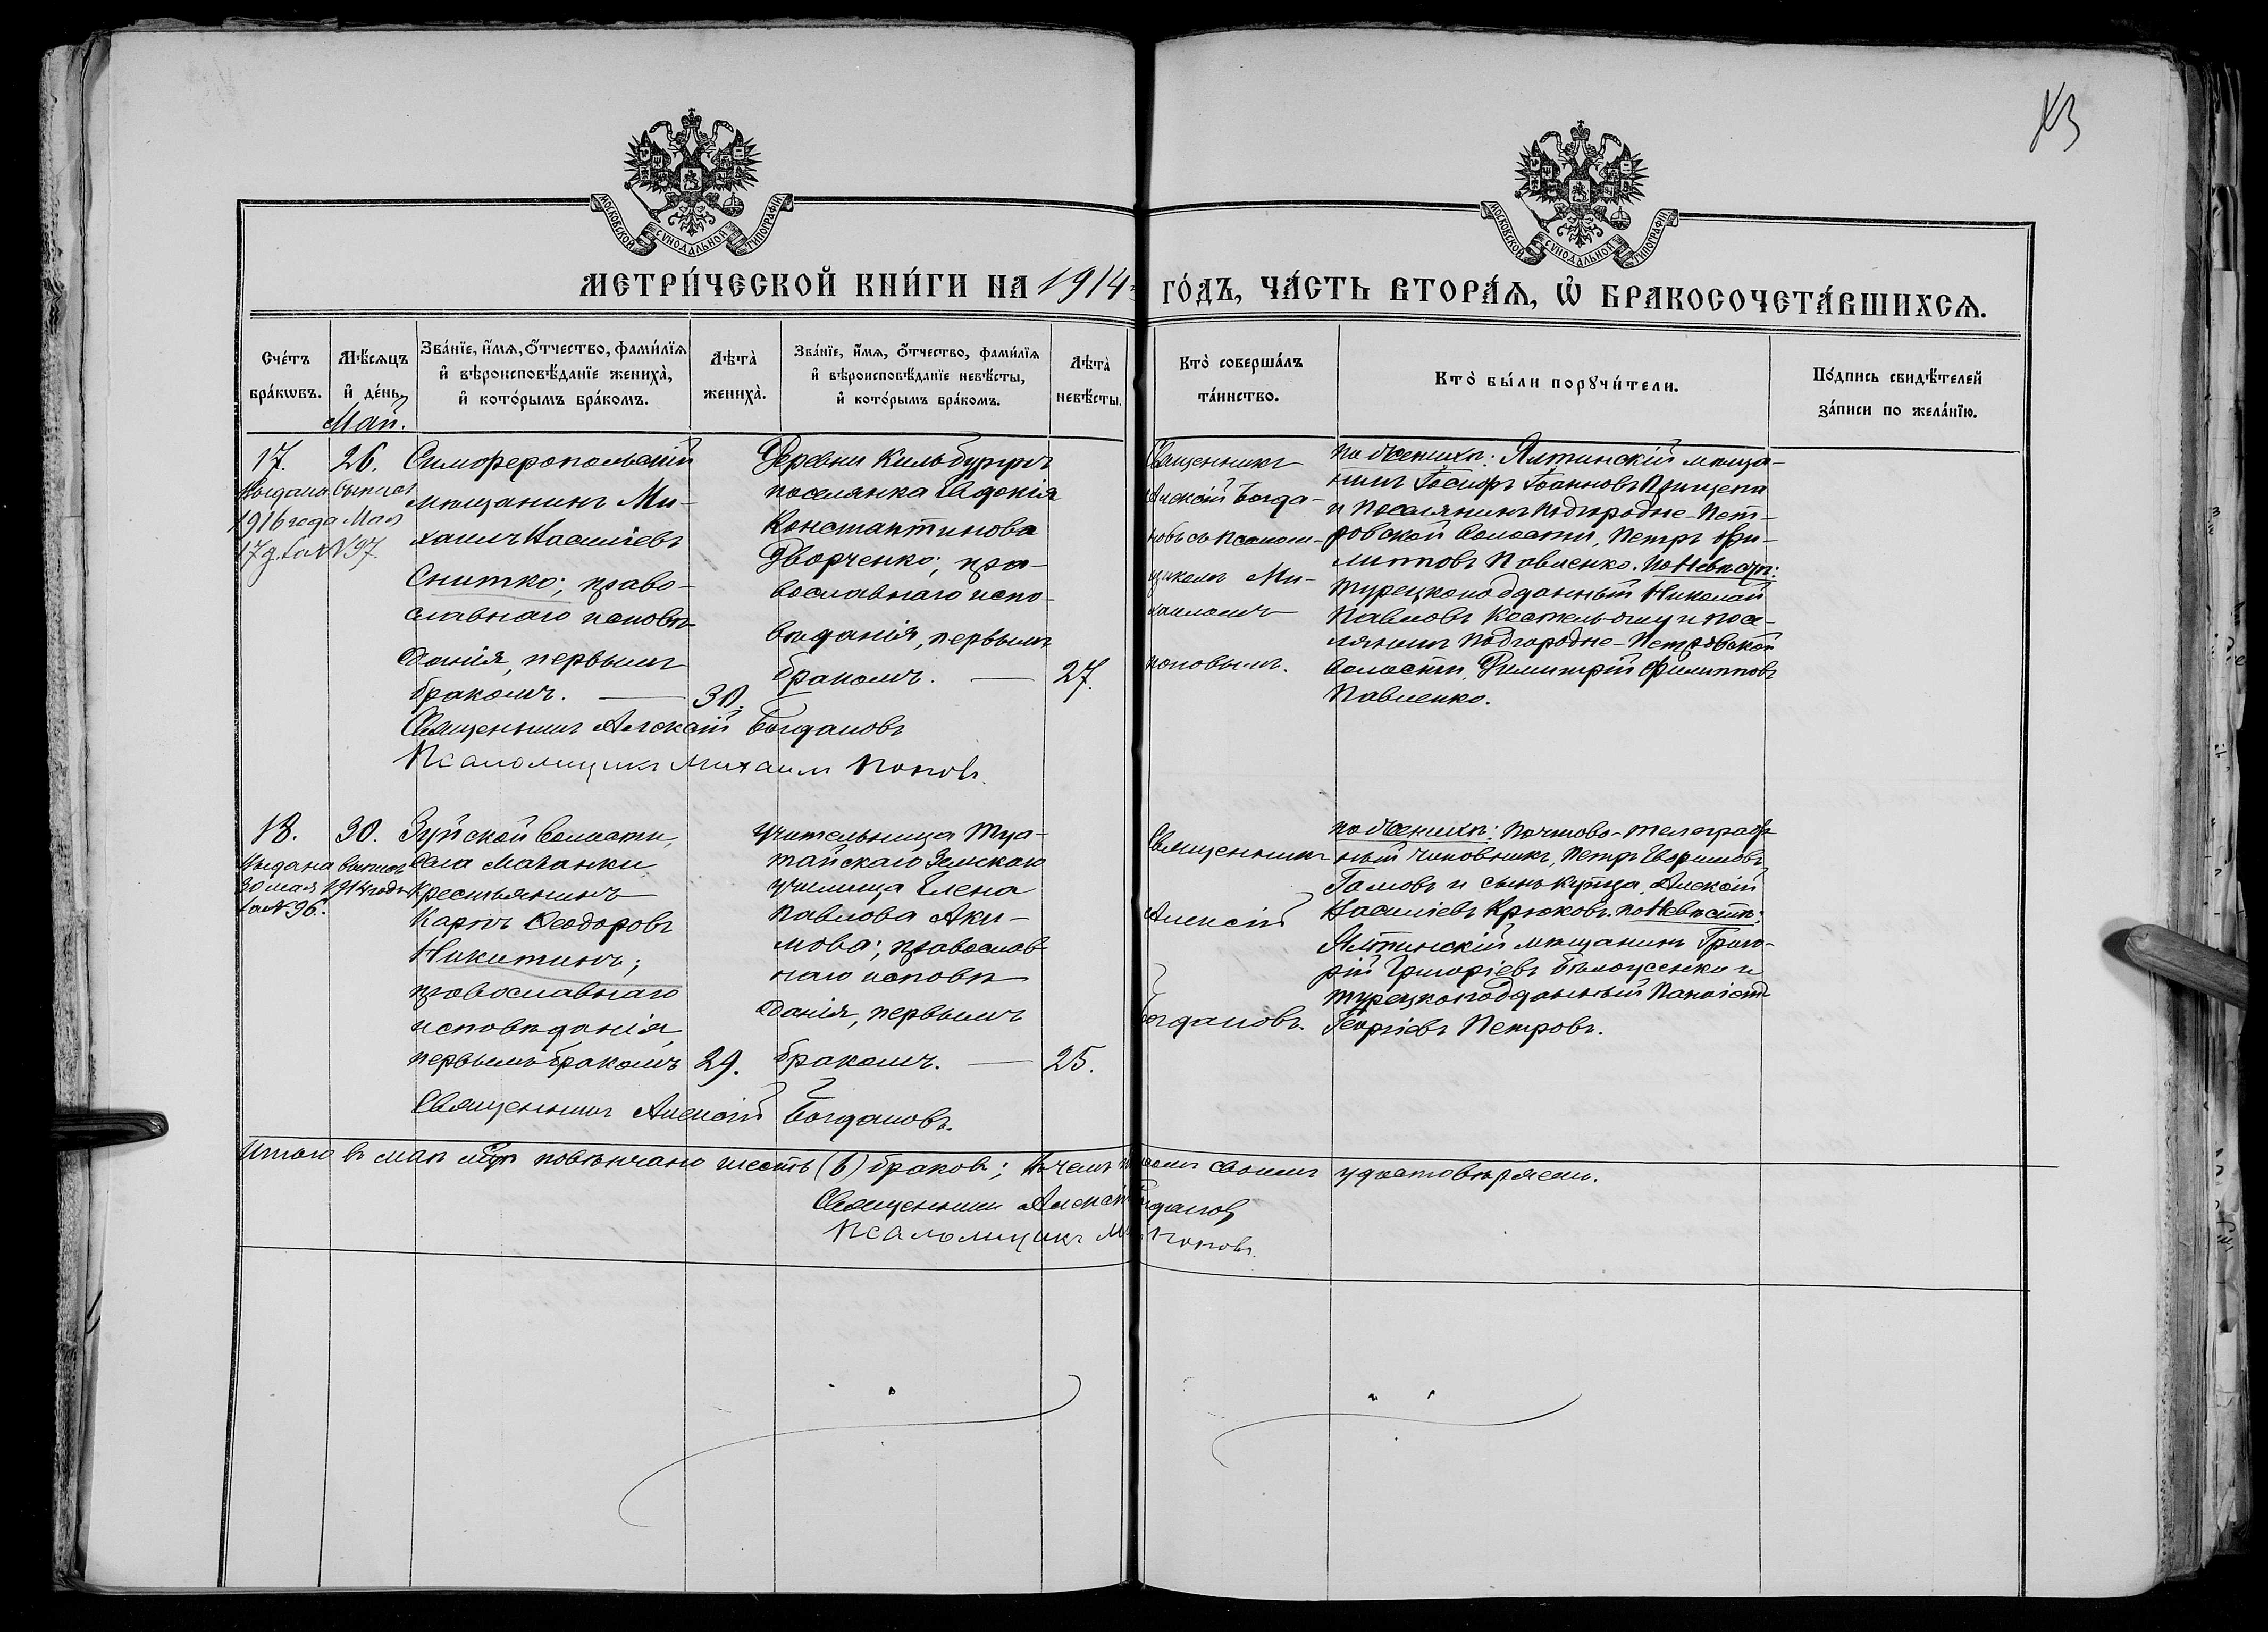 МОСКОВСКОЙ СѴНОДАЛЬНОЙ ТИПОГРАФІИ
МОСКОВСКОЙ СѴНОДАЛЬНОЙ ТИПОГРАФІИ
МЕТРИ́ЧЕСКОЙ КНИ́ГИ НА 1914
ГО́ДЪ, ЧА́СТЬ ВТОРА́Ѧ, Ѽ БРАКОСОЧЕТА́ВШИХСѦ.
Сче́тъ
бра́кѡвъ.
Мѣ́сѧцъ
и҆ де́нь
Май.
Зва́нїе, и҆́мѧ, Ѻ҆́тчество, фами́лїѧ
и҆ вѣроисповѣ́данїе жениха̀,
и҆ кото́рымъ бра́комъ.
Лѣта̀
жениха̀.
Зва́нїе, и҆́мѧ, ѻ҆́тчество, фами́лїѧ
и҆ вѣроисповѣ́данїе невѣ́сты,
и҆ кото́рымъ бра́комъ.
Лѣта̀
невѣ́сты.
Кто̀ соверша́лъ
та́инство.
Кто̀ бы́ли порꙋчи́тели.
По́дпись свидѣ́телей
за́писи по жела́нїю.
17.
Выдана выпись
1916 года Мая
17 д. за № 97.
26.
Симферопольскій
мѣщанинъ Ми-
хаилъ Василіевъ
Снитко; право-
славнаго исповѣ-
данія, первымъ
бракомъ.
30.
Деревни Кильбурунъ
поселянка Евдокія
Константинова
Дворченко; пра-
вославнаго испо-
вѣданія, первымъ
бракомъ.
27.
Священникъ
Алексій Богда-
новъ съ псалом-
щикомъ Ми-
хаиломъ
Поповымъ.
По женихѣ: Ялтинскій мѣща-
нинъ Іосифъ Іоанновъ
и поселянинъ Подгородне-Пет-
ровской волости, Петръ Фи-
липповъ Павленко. По невѣстѣ:
турецкоподданный Николай
Павловъ и посе-
лянинъ Подгородне-Петровской
волости, Димитрій Филипповъ
Павленко.
Священникъ Алексій Богдановъ
Псаломщикъ Михаилъ Поповъ.
18.
Выдана выпись
30 мая 1914 года
за № 96.
30.
Зуйской волости,
села Мазанки
крестьянинъ
Карпъ Ѳеодоровъ
Никитинъ;
православнаго
исповѣданія,
первымъ бракомъ
29.
Учительница
тайскаго Земскаго
училища Елена
Павлова Аки-
мова; православ-
наго исповѣ
данія, первымъ
бракомъ.
25.
Священникъ
Алексій
Богдановъ.
По женихѣ: почтово-телеграф-
ный чиновникъ, Петръ
и сынъ купца, Алексій
Василіевъ Крюковъ. По невѣстѣ:
Ялтинскій мѣщанинъ Григо-
рій Григоріевъ Бѣлоусенко и
турецкоподданный
Георгіевъ Петровъ.
Священникъ Алексій Богдановъ.
Итого въ маѣ мѣсяцѣ повѣнчано шесть (6) браковъ; въ чемъ своимъ удостовѣряемъ.
Священникъ Алексій Богдановъ
Псаломщикъ Поповъ.